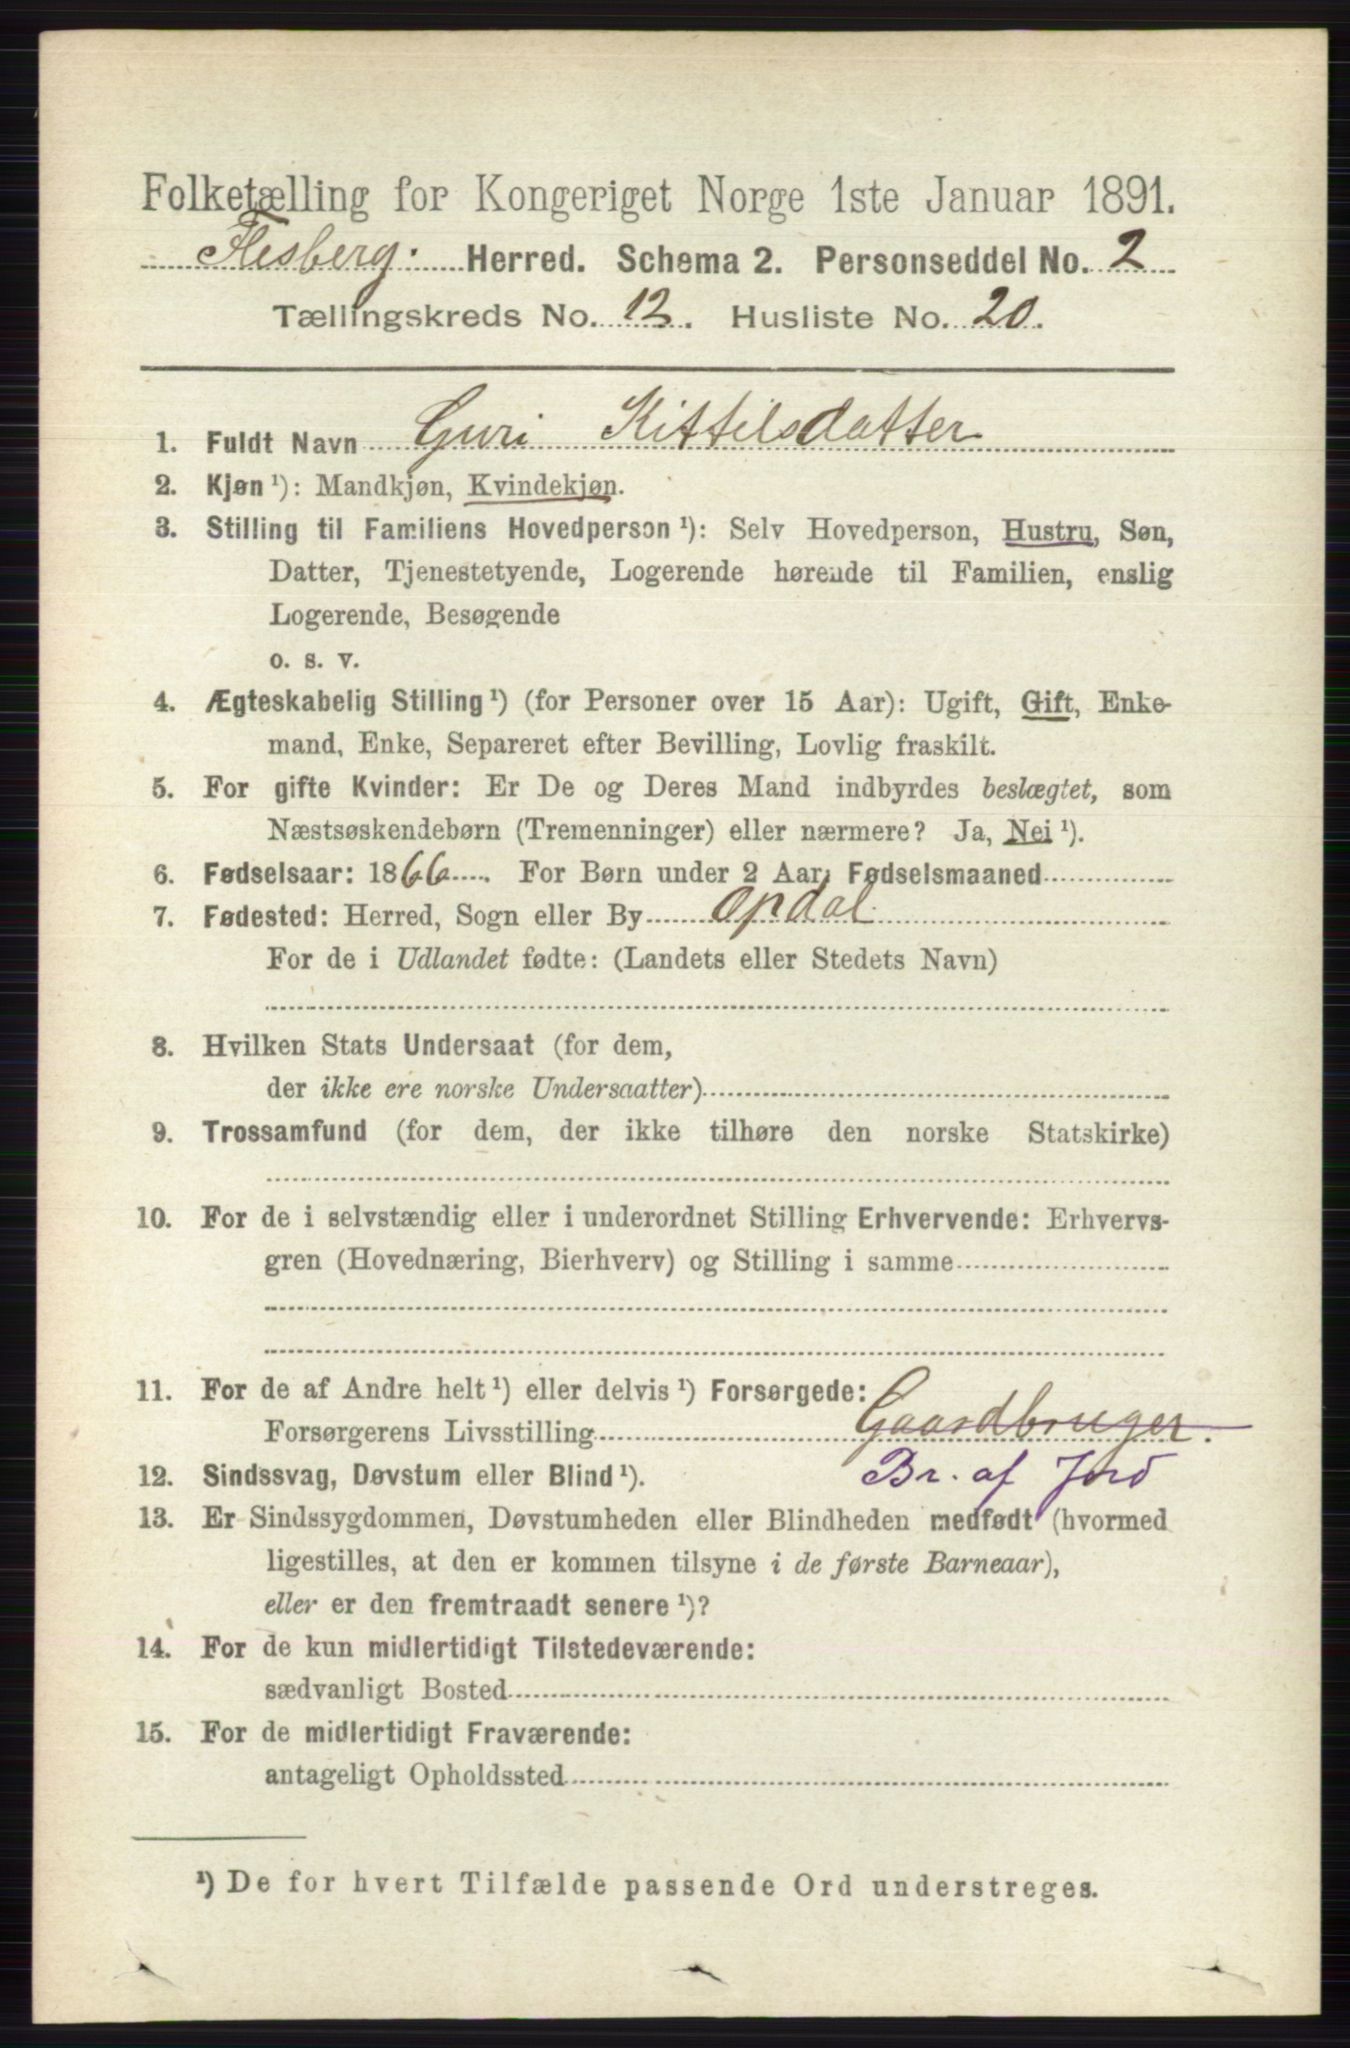 Folketælling for Kongeriget Norge 1ste Januar 1891.
Flesberg. Herred. Schema 2. Personseddel No. 2
Tællingskreds No. 12. Husliste No. 20.
1. Fuldt Navn Guri Kittilsdatter
2. Kjøn ¹): Mandkjøn, Kvindekjøn.
3. Stilling til Familiens Hovedperson ¹): Selv Hovedperson, Hustru, Søn,
Datter, Tjenestetyende, Logerende hørende til Familien, enslig
Logerende, Besøgende
o. s. v.
4. Ægteskabelig Stilling ¹) (for Personer over 15 Aar): Ugift, Gift, Enke-
mand, Enke, Separeret efter Bevilling, Lovlig fraskilt.
5. For gifte Kvinder: Er De og Deres Mand indbyrdes beslægtet, som
Næstsøskendebørn (Tremenninger) eller nærmere? Ja, Nei ¹).
6. Fødselsaar: 1866. For Børn under 2 Aar, Fødselsmaaned
7. Fødested: Herred, Sogn eller By Opdal
For de i Udlandet fødte: (Landets eller Stedets Navn)
8. Hvilken Stats Undersaat (for dem,
der ikke ere norske Undersaatter)
9. Trossamfund (for dem, der ikke tilhøre den norske Statskirke)
10. For de i selvstændig eller i underordnet Stilling Erhvervende: Erhvervs-
gren (Hovednæring, Bierhverv) og Stilling i samme
11. For de af Andre helt ¹) eller delvis ¹) Forsørgede:
Forsørgerens Livsstilling Gaardbruger.
12. Sindssvag, Døvstum eller Blind ¹). Br. af Jord
13. Er Sindssygdommen, Døvstumheden eller Blindheden medfødt (hvormed
ligestilles, at den er kommen tilsyne i de første Barneaar),
eller er den fremtraadt senere ¹)?
14. For de kun midlertidigt Tilstedeværende:
sædvanligt Bosted
15. For de midlertidigt Fraværende:
antageligt Opholdssted
¹) De for hvert Tilfælde passende Ord understreges.